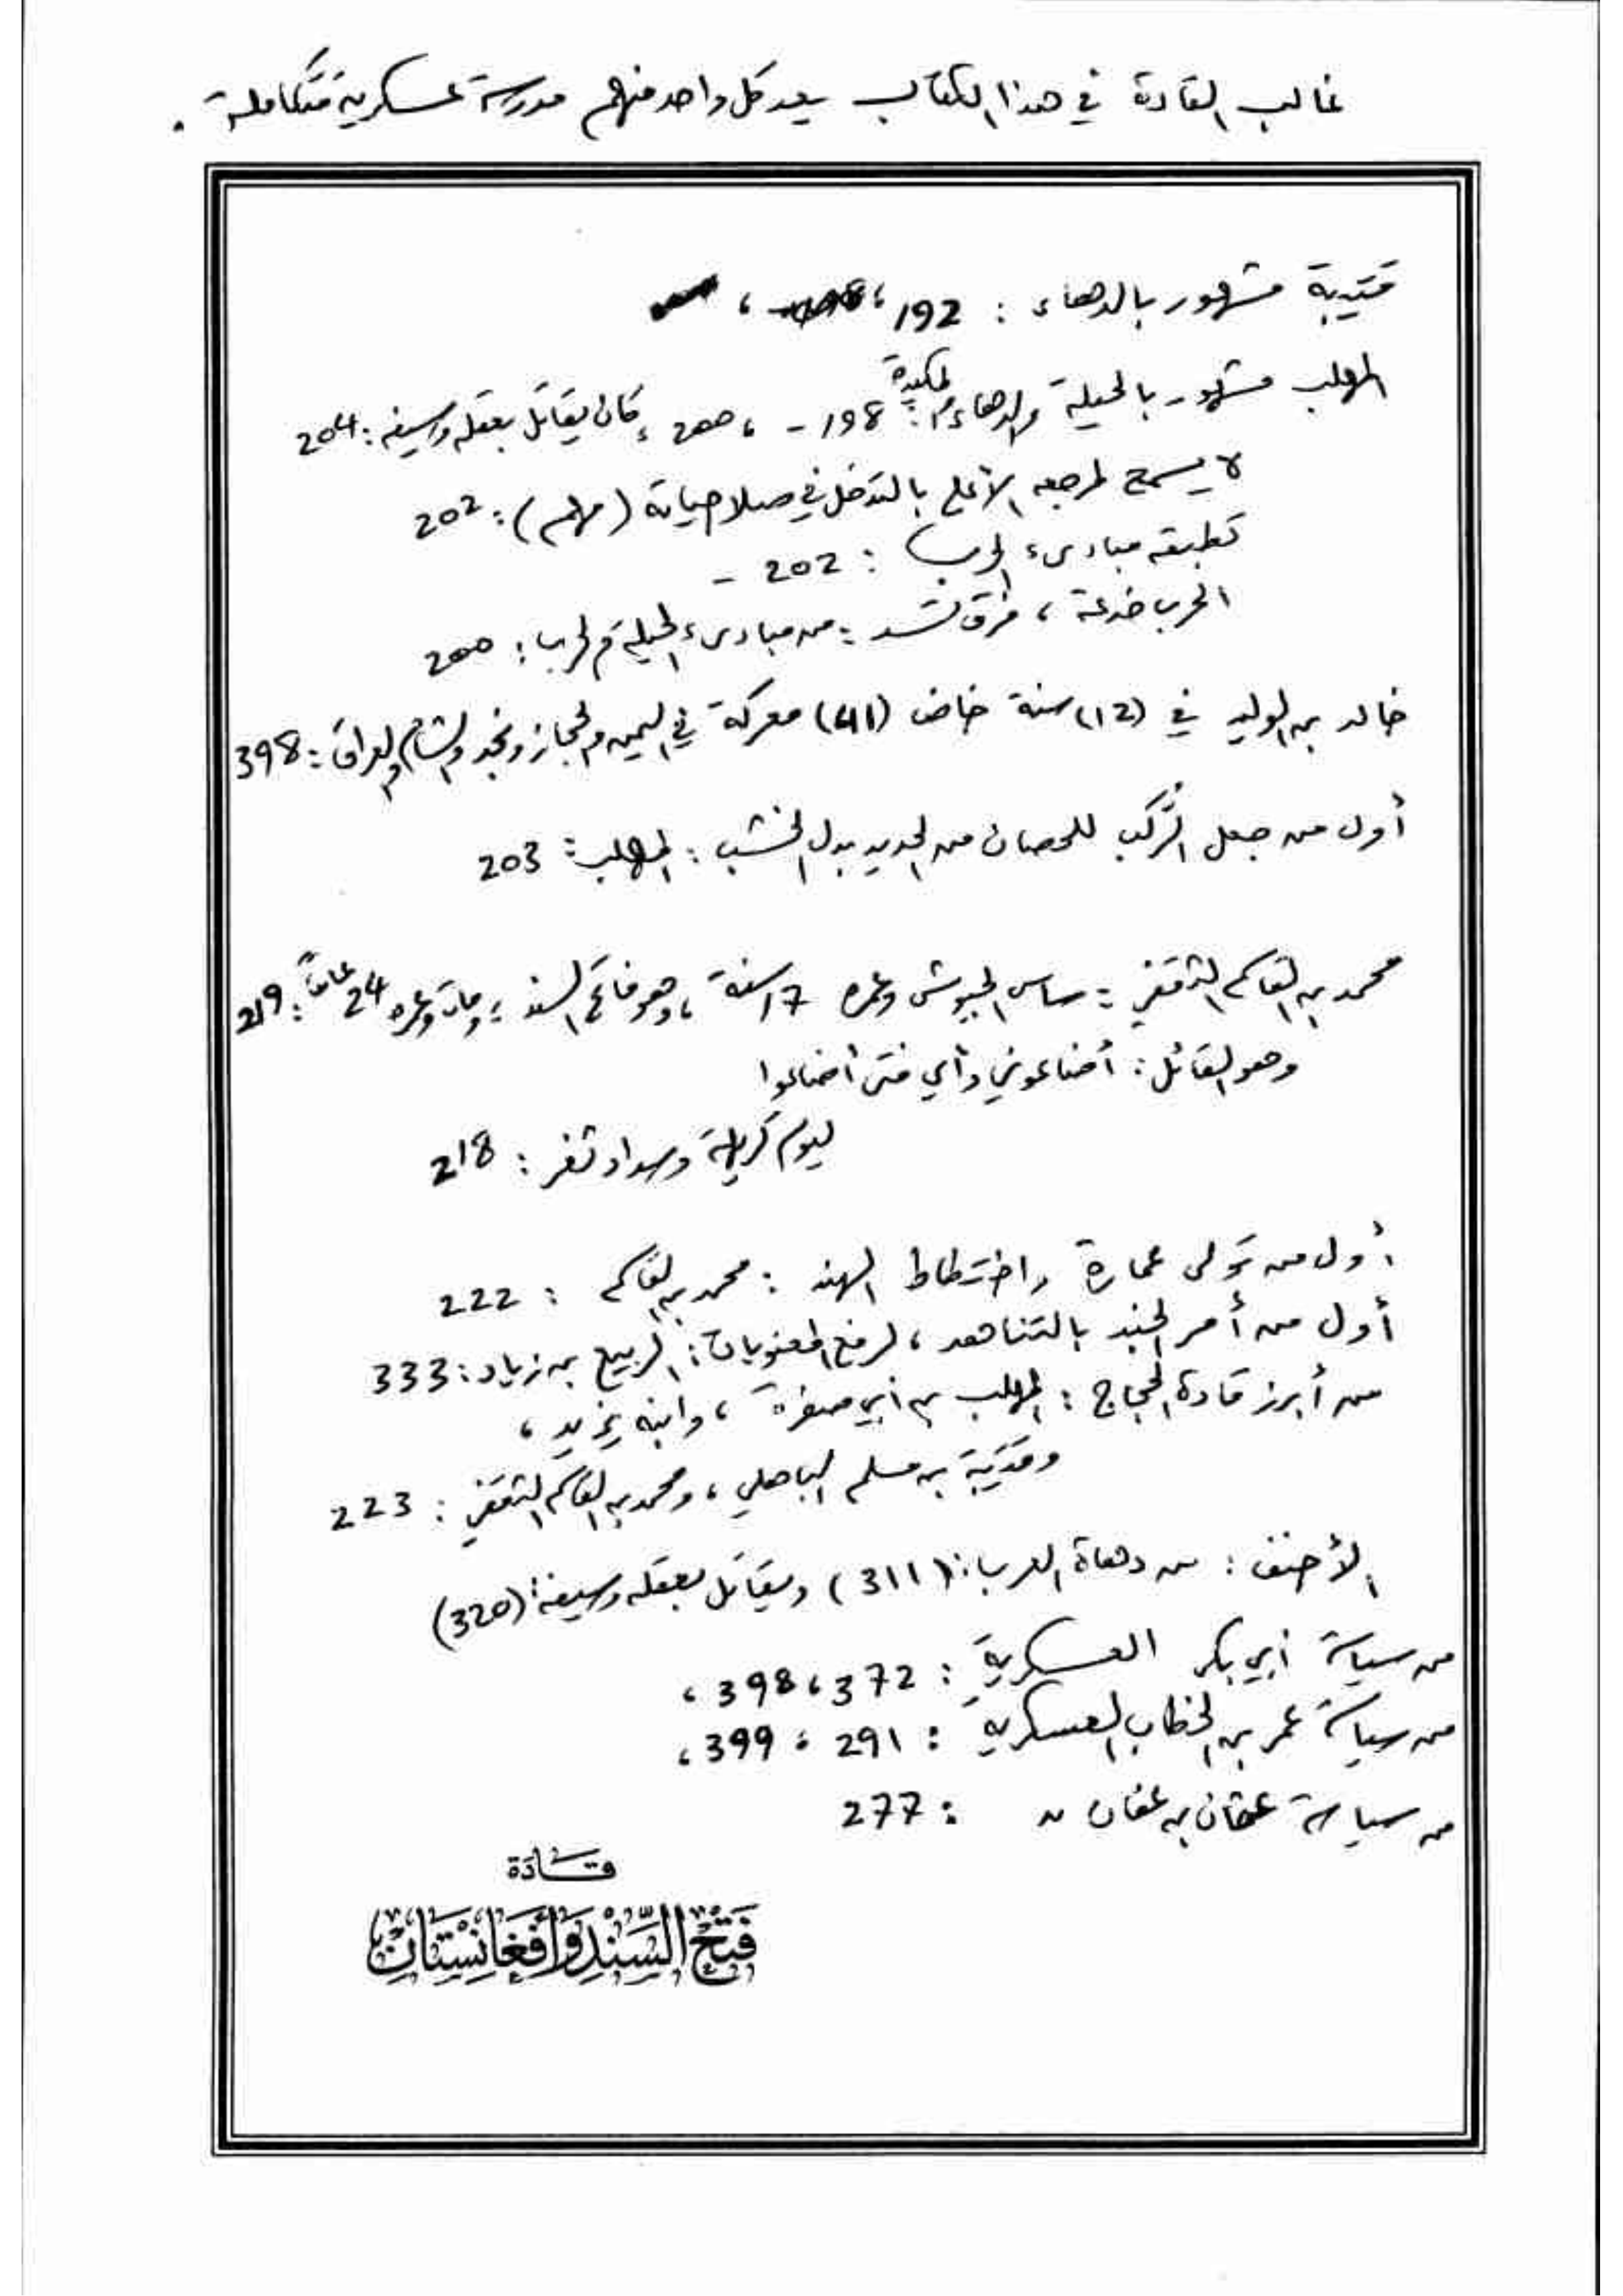 غالب القادة في هذا الكتاب يعد كل واحد منهم مدرسة عسكرية متكاملة.
قتيبة مشهور بالدهاء : 192،
المهلب مشهور بالحيلة والدهاء والمكيدة : 198 - ، 200 ، كان يقاتل بعقله وسيفه : 204
لا يسمح لمرجعه الأعلى بالتدخل في صلاحياته (مهم) : 202
تطبيقه مبادىء الحرب : 202 -
الحرب خدعة ، فرق تسد : من مبادىء الحيلة في الحرب : 200
خالد بن الوليد في (12) سنة خاض (41) معركة في اليمن والحجاز ونجد والشام والعراق : 398
أول من جعل الرُّكب للحصان من الحديد بدل الخشب : المهلب : 203
محمد بن القاسم الثقفي : ساس الجيوش وعمره 17 سنة ، وهو فاتح السند ، ومات وعمره 24 عاماً : 219
وهو القائل : أضاعوني وأي فتى أضاعوا
ليوم كريهة وسداد ثغر : 218
أول من تولى عمارة واختطاط الهند : محمد بن القاسم : 222
أول من أمر الجند بالتناهد ، لرفع المعنويات : الربيع بن زياد : 333
من أبرز قادة الحجاج : المهلب بن أبي صفرة ، وابنه يزيد ،
وقتيبة بن مسلم الباهلي ، ومحمد بن القاسم الثقفي : 223
الأحنف : من دهاة العرب : (311) ويقاتل بعقله وسيفه : (320)
من سياسة أبي بكر العسكرية : 372 ، 398 ،
من سياسة عمر بن الخطاب العسكرية : 291 ، 399 ،
من سياسة عثمان بن عفان 〃 : 277
قادة
فَتْحُ السِّنْدِ وَأَفْغَانِسْتَانَ